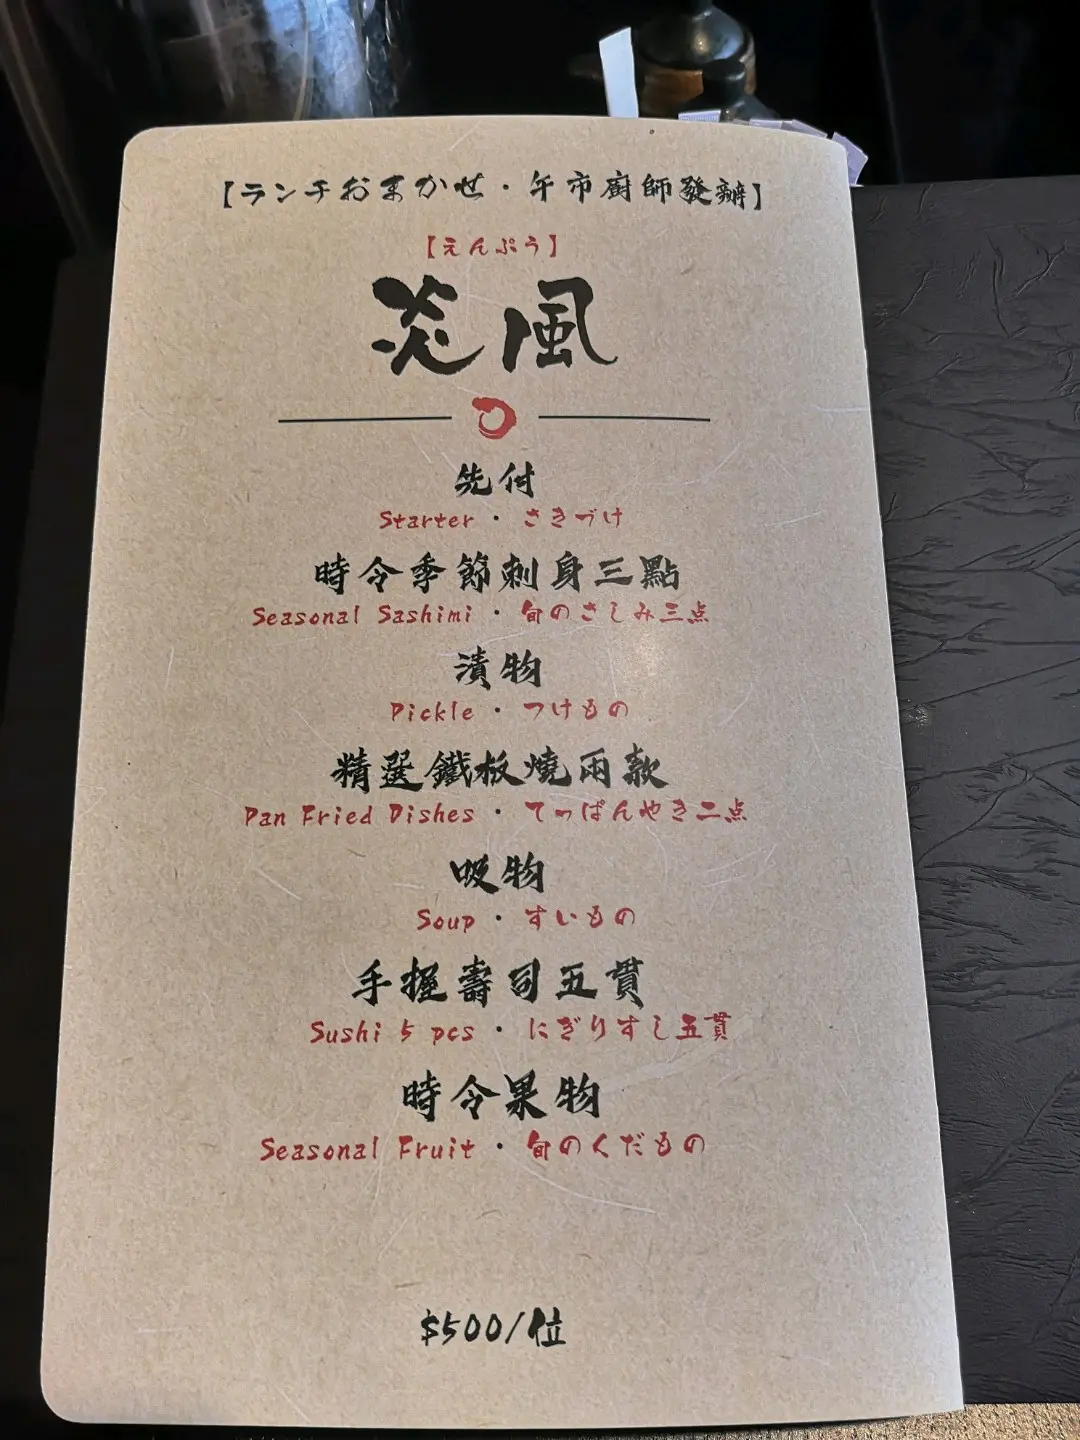 【ランチおまかせ・午市廚師發辦】
【えんぷう】
炎風
先付
Starter・さきづけ
時令季節刺身三點
Seasonal Sashimi・旬のさしみ三点
漬物
Pickle・つけもの
精選鐵板燒兩款
Pan Fried Dishes・てっぱんやき二点
吸物
Soup・すいもの
手握壽司五貫
Sushi 5 pcs・にぎりすし五貫
時令果物
Seasonal Fruit・旬のくだもの
$500/位